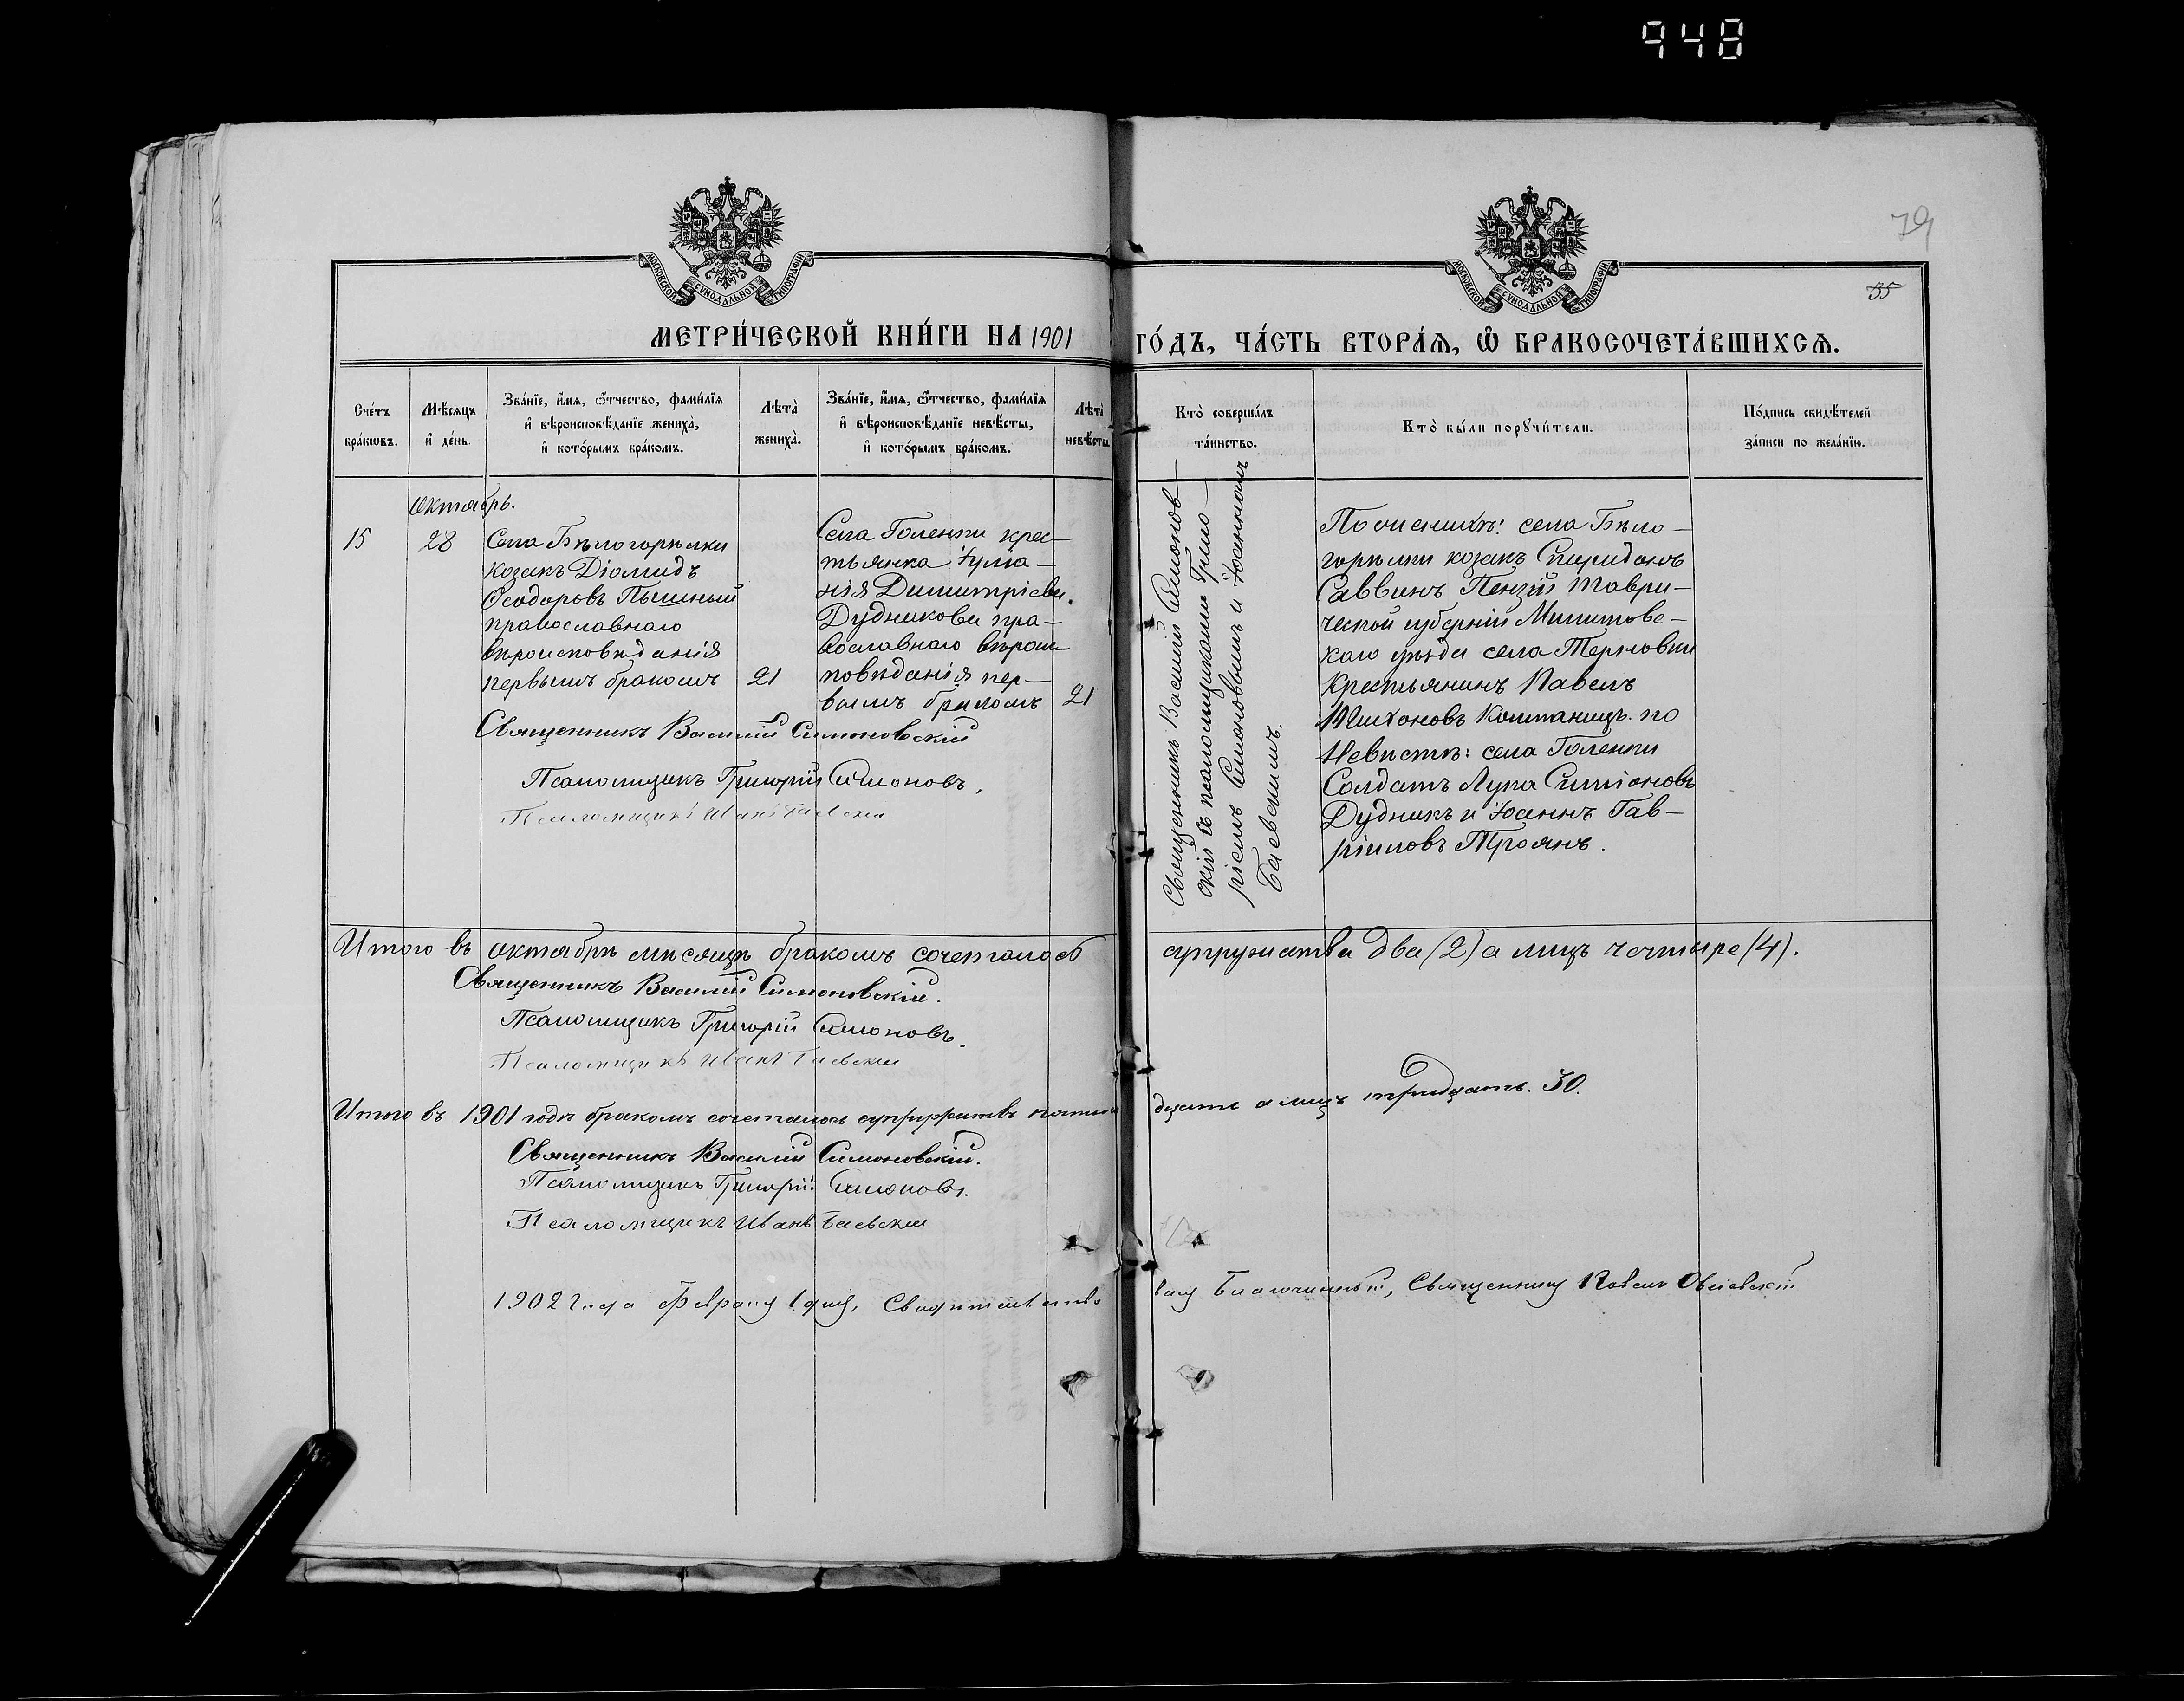 948
79
35
МОСКОВСКОЙ СѴНОДАЛЬНОЙ ТИПОГРАФІИ
МОСКОВСКОЙ СѴНОДАЛЬНОЙ ТИПОГРАФІИ
МЕТРИ́ЧЕСКОЙ КНИ́ГИ НА 1901 ГО́ДЪ, ЧА́СТЬ ВТОРА́Я, Ѿ БРАКОСОЧЕТА́ВШИХСЯ.
Сче́тъ бра́кωвъ.
Мѣ́сяцъ и҆ де́нь.
Зва́нїе, и҆́мя, ѻ҆́тчество, фами́лїя
и҆ вѣроисповѣ́данїе жениха̀,
и҆ кото́рымъ бра́комъ.
Лѣта̀ жениха̀.
Зва́нїе, и҆́мя, ѻ҆́тчество, фами́лїя
и҆ вѣроисповѣ́данїе невѣ́сты,
и҆ кото́рымъ бра́комъ.
Лѣта̀ невѣ́сты.
Кто̀ соверша́лъ та́инство.
Кто̀ бы́ли порꙋчи́тели.
По́дпись свидѣ́телей за́писи по жела́нїю.
Октябрь.
15
28
Села Бѣлогорѣлки
козакъ Діомидъ
Ѳеодоровъ Пышный
православнаго
вѣроисповѣданія
первымъ бракомъ
21
Села Голенки крес-
тьянка Іулiа-
нія Димитріева
Дудникова пра-
вославнаго вѣроис-
повѣданія пер-
вымъ бракомъ
21
Священникъ Василій Симонов-
скій съ псаломщиками Григо-
ріемъ Симоновымъ и Іоанномъ
Баевскимъ.
По женихѣ: села Бѣло-
горѣлки козакъ Спиридонъ
Саввинъ Пензій Таври-
ческой губерніи Мелитопо-
каго уѣзда села Терновки
Крестьянинъ Павелъ
Тихоновъ Коштанецъ. по
Невѣстѣ: села Голенки
Солдатъ Лука Симоновъ
Дудникъ и Іоаннъ Гав-
ріиловъ Троянъ.
Священникъ Василій Симоновскій
Псаломщикъ Григорій Симоновъ,
Псаломщикъ Иванъ Баевскій
Итого въ октябрѣ мѣсяцѣ бракомъ сочеталось супружества два (2) а лицъ четыре (4).
Священникъ Василій Симоновскій.
Псаломщикъ Григорій Симоновъ.
Псаломщикъ Иванъ Баевскій
Итого въ 1901 годѣ бракомъ сочеталось супружествъ пятнадцать а лицъ тридцать. 30.
Священникъ Василій Симоновскій.
Псаломщикъ Григорій Симоновъ.
Псаломщикъ Иванъ Баевскій
1902 года Февраля 1 дня, Свидѣтельствовалъ Благочинный, Священникъ Павелъ